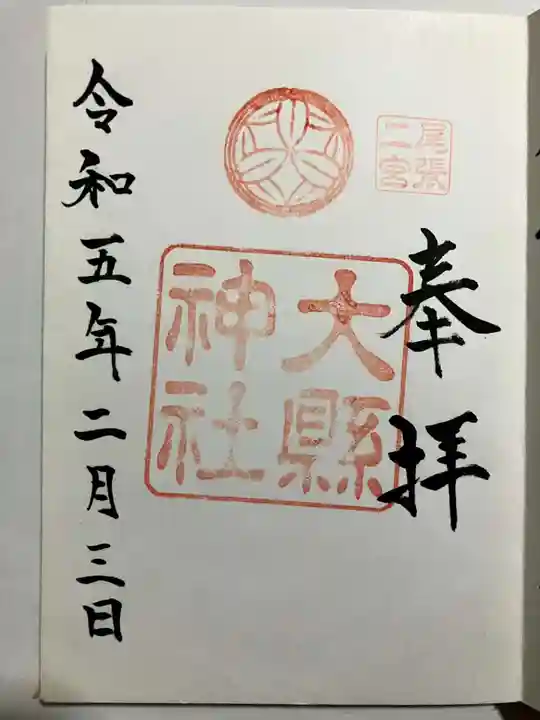 尾張
二宮
奉拝
大縣
神社
令和五年二月三日